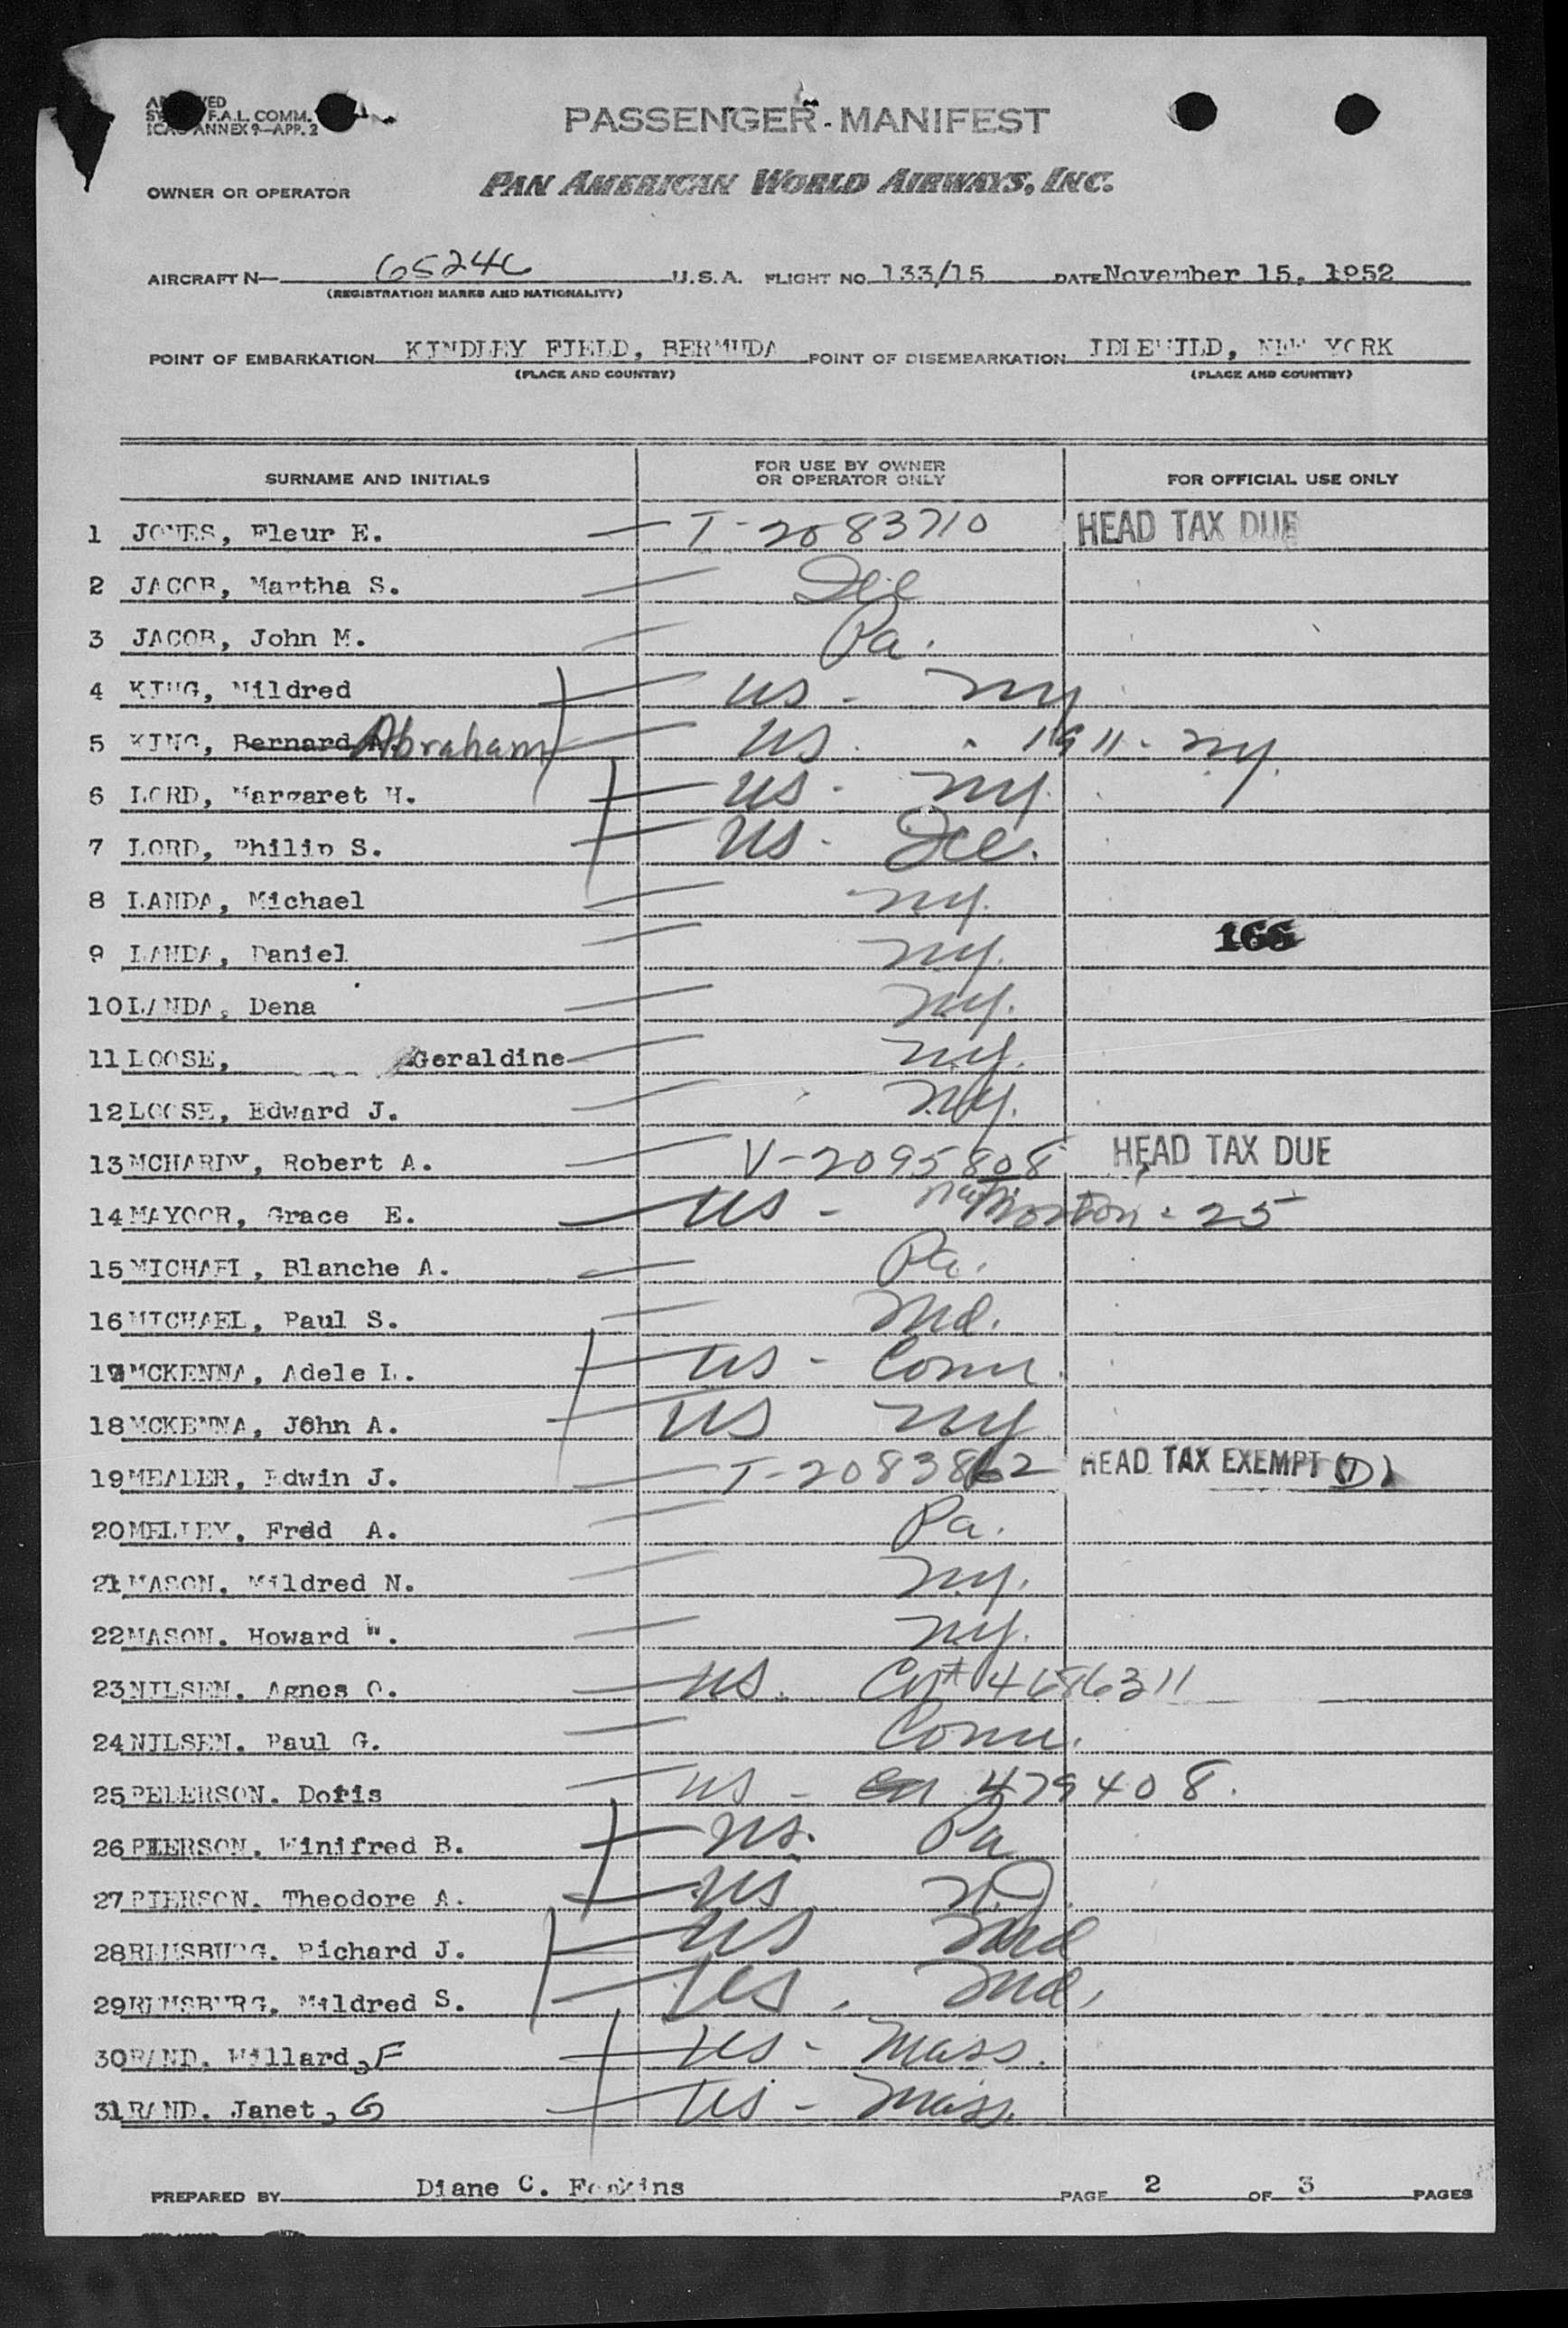 PASSENGER MANIFEST
F.A.L. COMM.
ANNEX 9—APP. 2
OWNER OR OPERATOR PAN AMERICAN WORLD AIRWAYS, INC.
AIRCRAFT N— U.S.A. FLIGHT NO. 133/15 DATE November 15, 1952
(REGISTRATION MARKS AND NATIONALITY)
POINT OF EMBARKATION KINDLEY FIELD, BERMUDA POINT OF DISEMBARKATION IDLEWILD, NEW YORK
(PLACE AND COUNTRY) (PLACE AND COUNTRY)
SURNAME AND INITIALS FOR USE BY OWNER OR OPERATOR ONLY FOR OFFICIAL USE ONLY
1 JONES, Fleur E. T-2083710 HEAD TAX DUE
2 JACOB, Martha S. Ill
3 JACOB, John M. Pa.
4 KING, Mildred US - NY
5 KING, Bernard A. Abraham US - 1911 - NY.
6 LORD, Margaret H. US - NY.
7 LORD, Philip S. US - Ill.
8 LANDA, Michael NY.
9 LANDA, Daniel NY. 166
10 LANDA, Dena NY.
11 LOOSE, Geraldine NY.
12 LOOSE, Edward J. NY.
13 MCHARDY, Robert A. V-2095808 HEAD TAX DUE
14 MAYOOR, Grace E. US - nat. Boston - 25
15 MICHAEL, Blanche A. Pa.
16 MICHAEL, Paul S. Md.
17 MCKENNA, Adele L. US - Conn.
18 MCKENNA, John A. US NY
19 MEADER, Edwin J. T-2083862 HEAD TAX EXEMPT (D)
20 MELLEY, Fred A. Pa.
21 MASON, Mildred N. NY.
22 MASON, Howard W. NY.
23 NILSEN, Agnes O. US. Cn# 4686311
24 NILSEN, Paul G. Conn.
25 PEDERSON, Doris US - cn 479408.
26 PIERSON, Winifred B. US. Pa
27 PIERSON, Theodore A. US N.J.
28 REMSBURG, Richard J. US Md
29 REMSBURG, Mildred S. US. Md.
30 RAND, Willard, F US - Mass.
31 RAND, Janet, G US - Mass.
PREPARED BY Diane C. PAGE 2 OF 3 PAGES